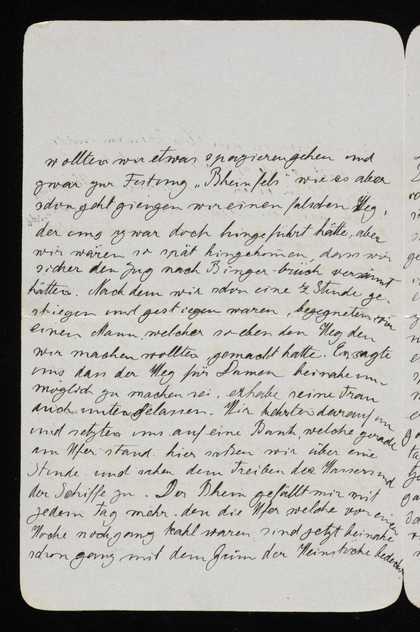 wollten wir etwas spazierengehen und
zwar zur Festung „Rheinfels" wie es aber
schon geht giengen wir einen falschen Weg,
der uns zwar doch hingeführt hätte, aber
wir wären so spät hingekommen, dass wir
sicher den Zug nach Bingerbrück versäumt
hätten. Nachdem wir schon eine ½ Stunde ge-
stiegen und gestiegen waren, begegneten wir
einen Mann, welcher soeben den Weg den
wir machen wollten gemacht hatte. Er sagte
uns dass der Weg für Damen beinahe un
möglich zu machen sei, er habe seine Frau
auch unten gelassen. Wir kehrten darauf um
und setzten uns auf eine Bank, welche gerade
am Ufer stand. hier sassen wir über eine
Stunde und sahen dem Treiben des Wassers und
der Schiffe zu. Der Rhein gefällt mir mit
jedem Tag mehr. den die Ufer welche vor einer
Woche noch ganz kahl waren, sind jetzt beinahe
schon ganz mit dem Grün der Weinstöcke bedeckt